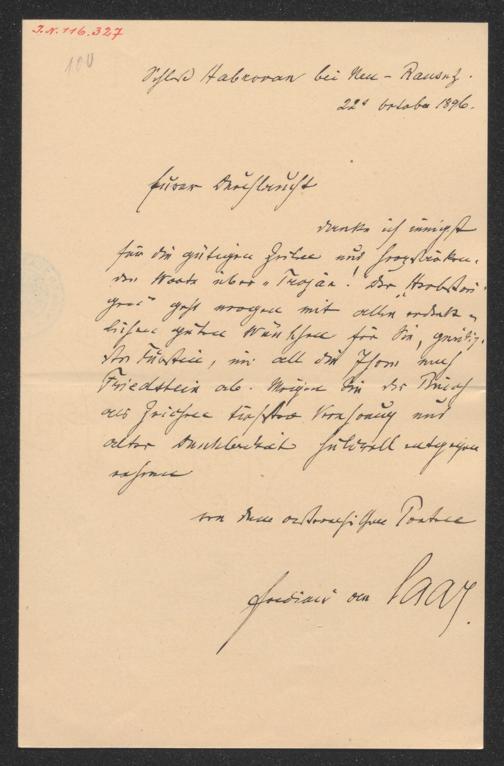 J.N. 116.327
100
Schloß Habrovan bei Neu-Rausnitz.
22t October 1896.
Euer Durchlaucht
danke ich innigst
für die gütigen Zeilen und herzstärken-
den Worte über "Trojan"! Der "Herbstrei-
gen" geht morgen mit allen erdenk-
lichen guten Wünschen für Sie, gnädig-
ste Fürstin, und all die Ihren nach
Friedstein ab. Mögen Sie das Buch
als Zeichen tiefster Verehrung und
alter Dankbarkeit huldvoll entgegen
nehmen
von dem österreichischen Poeten
Ferdinand von Saar.